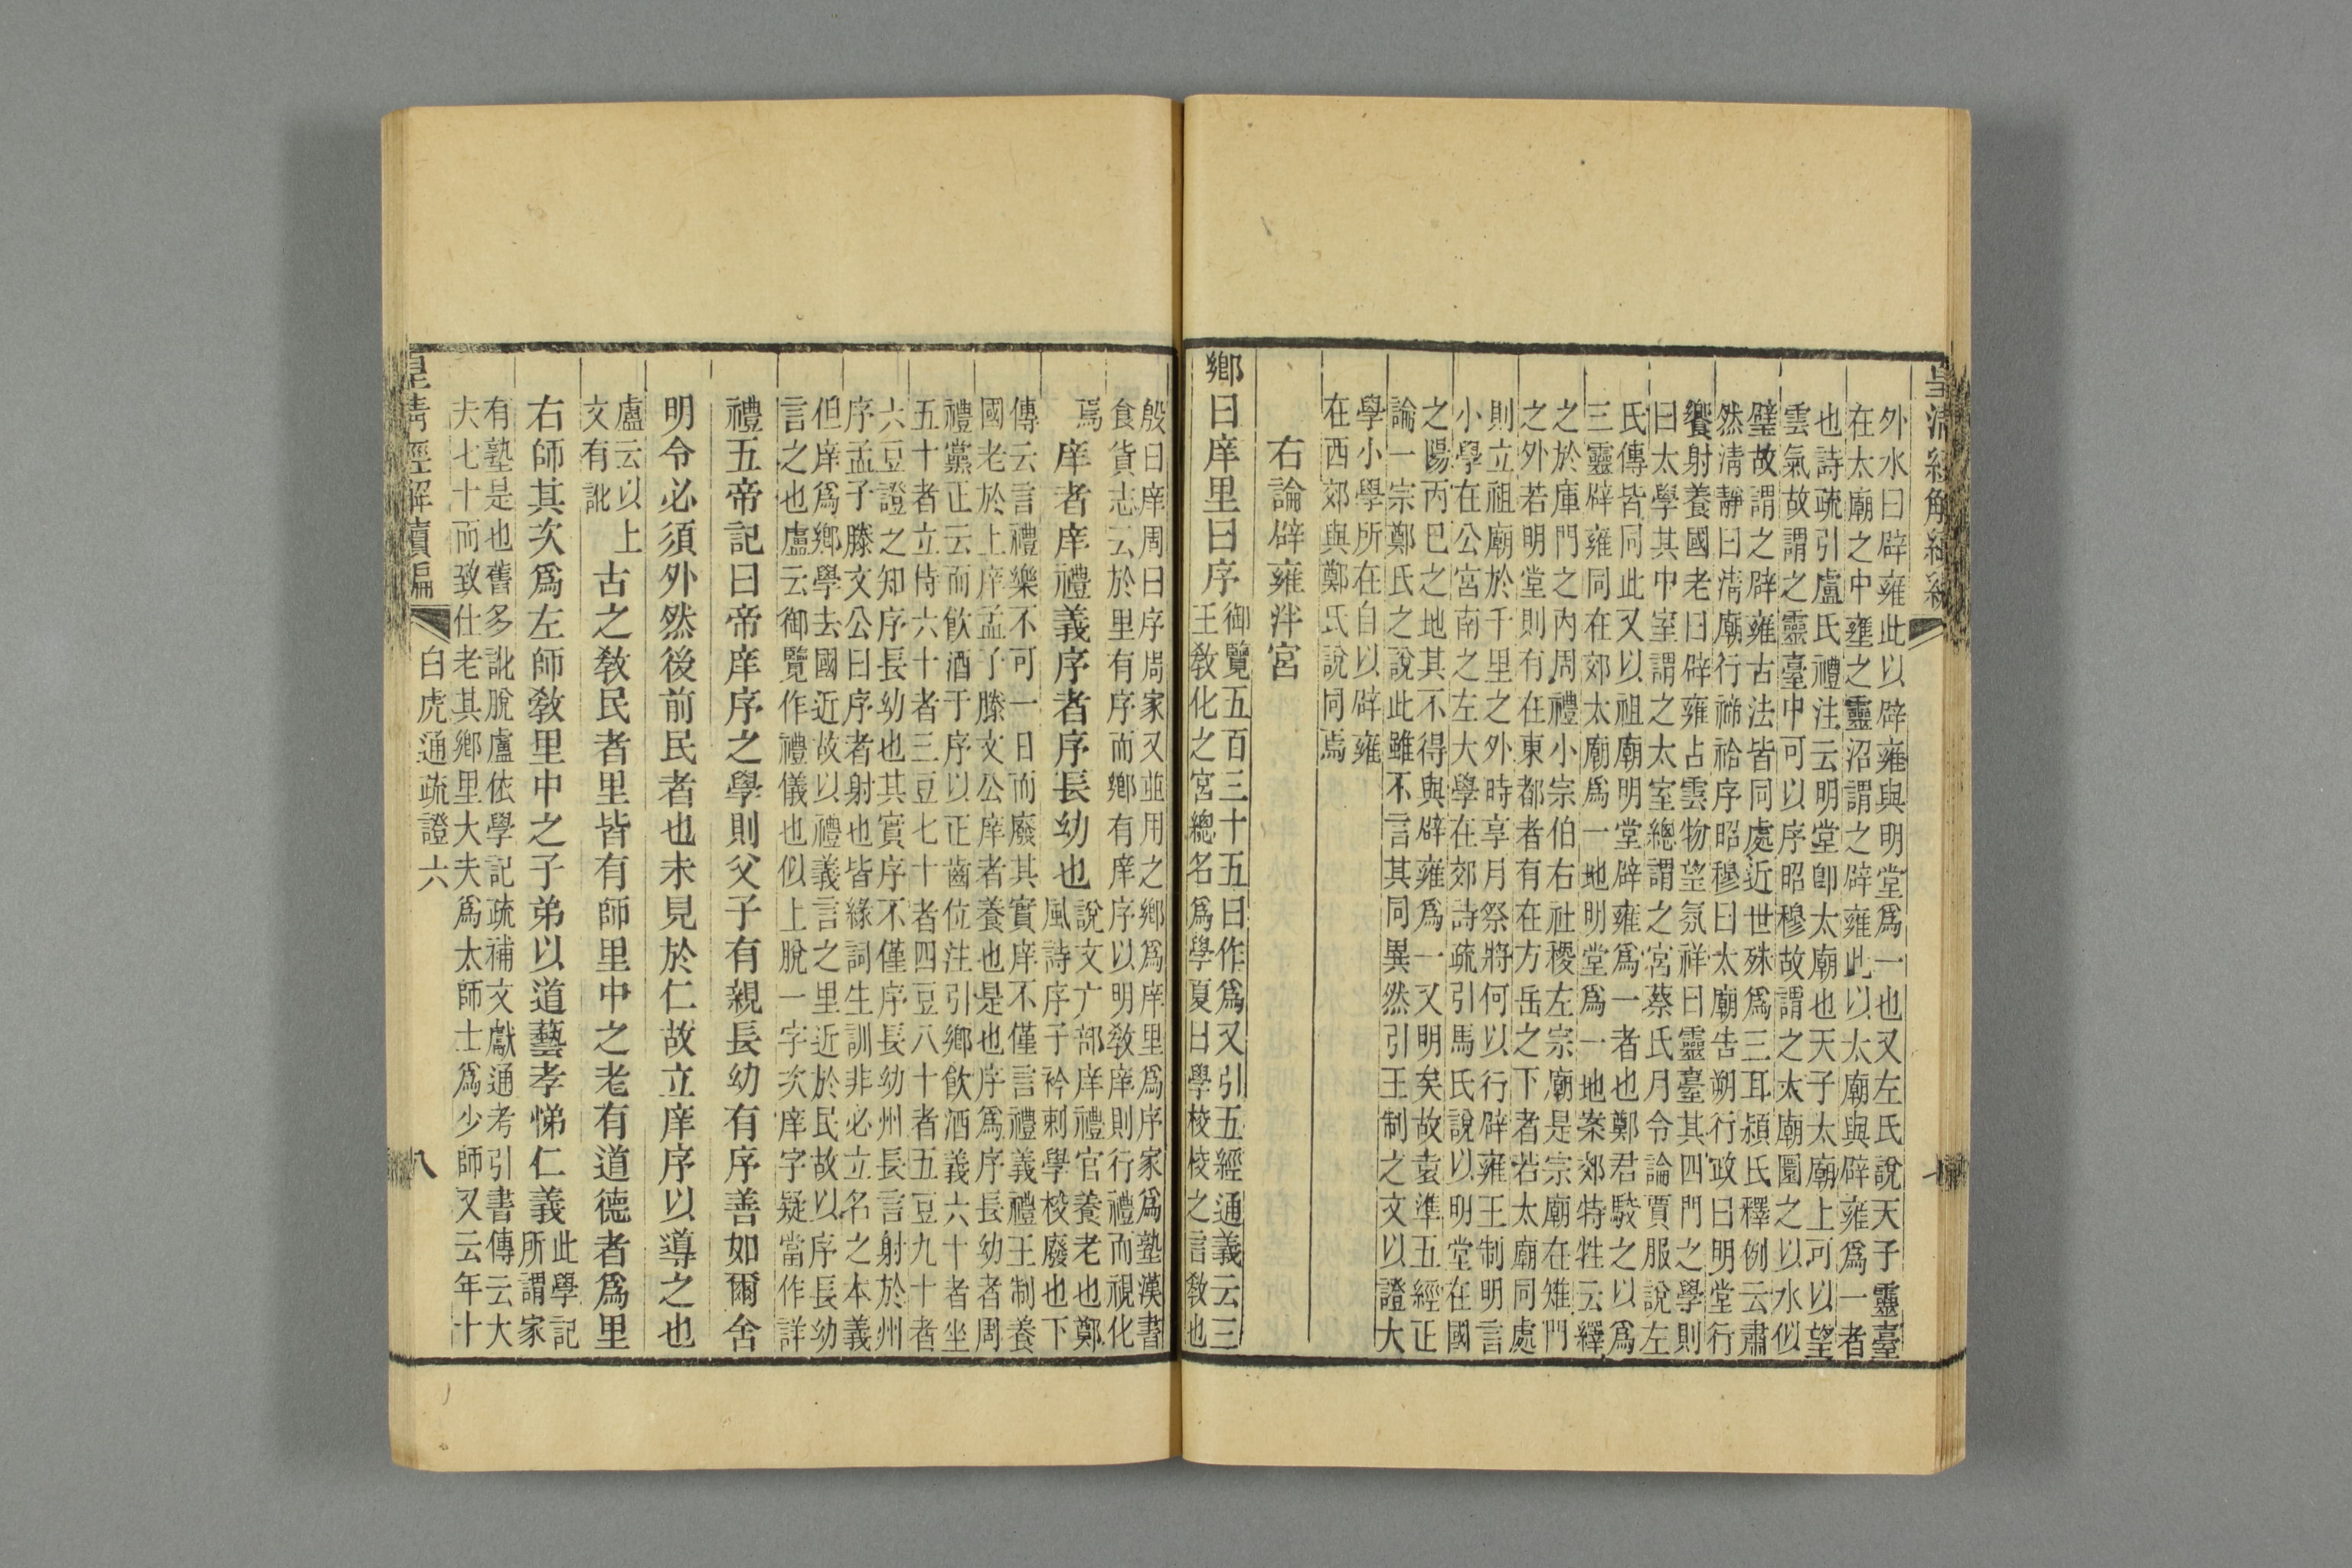 外水曰辟雍此以辟雍與明堂爲一也又左氏說天子靈臺
在太廟之中壅之靈沼謂之辟雍此以太廟與辟雍爲一者
也詩疏引盧氏禮注云明堂卽太廟也天子太廟上可以望
雲氣故謂之靈臺中可以序昭穆故謂之太廟圜之以水似
璧故謂之辟雍古法皆同處近世殊爲三耳潁氏釋例云肅
然淸靜曰淸廟行禘祫序昭穆曰太廟告朔行政曰明堂行
饗射養國老曰辟雍占雲物望氛祥曰靈臺其四門之學則
曰太學其中室謂之太室總謂之宮蔡氏月令論賈服說左
氏傳皆同此又以祖廟明堂辟雍爲一者也鄭君駮之以爲
三靈辟雍同在郊太廟爲一地明堂爲一地案郊特牲云繹
之於庫門之內周禮小宗伯右社稷左宗廟是宗廟在雉門
之外若明堂則有在東都者有在方岳之下者若太廟同處
則立祖廟於千里之外時享月祭將何以行辟雍王制明言
小學在公宮南之左大學在郊詩疏引馬氏說以明堂在國
之陽丙巳之地其不得與辟雍爲一又明矣故袁準五經正
論一宗鄭氏之說此雖不言其同異然引王制之文以證大
學小學所在自以辟雍
在西郊與鄭氏說同焉
右論辟雍泮宮
鄉曰庠里曰序
御覽五百三十五曰作爲又引五經通義云三
王敎化之宮總名爲學夏曰學校校之言敎也
殷曰庠周曰序周家又並用之鄉爲庠里爲序家爲塾漢書
食貨志云於里有序而鄉有庠序以明敎庠則行禮而視化
焉
庠者庠禮義序者序長幼也
說文广部庠禮官養老也鄭
風詩序子衿刺學校廢也下
傳云言禮樂不可一日而廢其實庠不僅言禮義禮王制養
國老於上庠孟子滕文公庠者養也是也序爲序長幼者周
禮黨正云而飮酒于序以正齒位注引鄉飮酒義六十者坐
五十者立侍六十者三豆七十者四豆八十者五豆九十者
六豆證之知序長幼也其實序不僅序長幼州長言射於州
序孟子滕文公曰序者射也皆緣詞生訓非必立名之本義
但庠爲鄉學去國近故以禮義言之里近於民故以序長幼
言之也盧云御覽作禮儀也似上脫一字次庠字疑當作詳
禮五帝記曰帝庠序之學則父子有親長幼有序善如爾舍
明令必須外然後前民者也未見於仁故立庠序以導之也
盧云以上
文有訛
古之敎民者里皆有師里中之老有道德者爲里
右師其次爲左師敎里中之子弟以道藝孝悌仁義
此學記
所謂家
有塾是也舊多訛脫盧依學記疏補文獻通考引書傳云大
夫七十而致仕老其鄉里大夫爲太師士爲少師又云年十
皇淸經解續編 白虎通疏證六 八